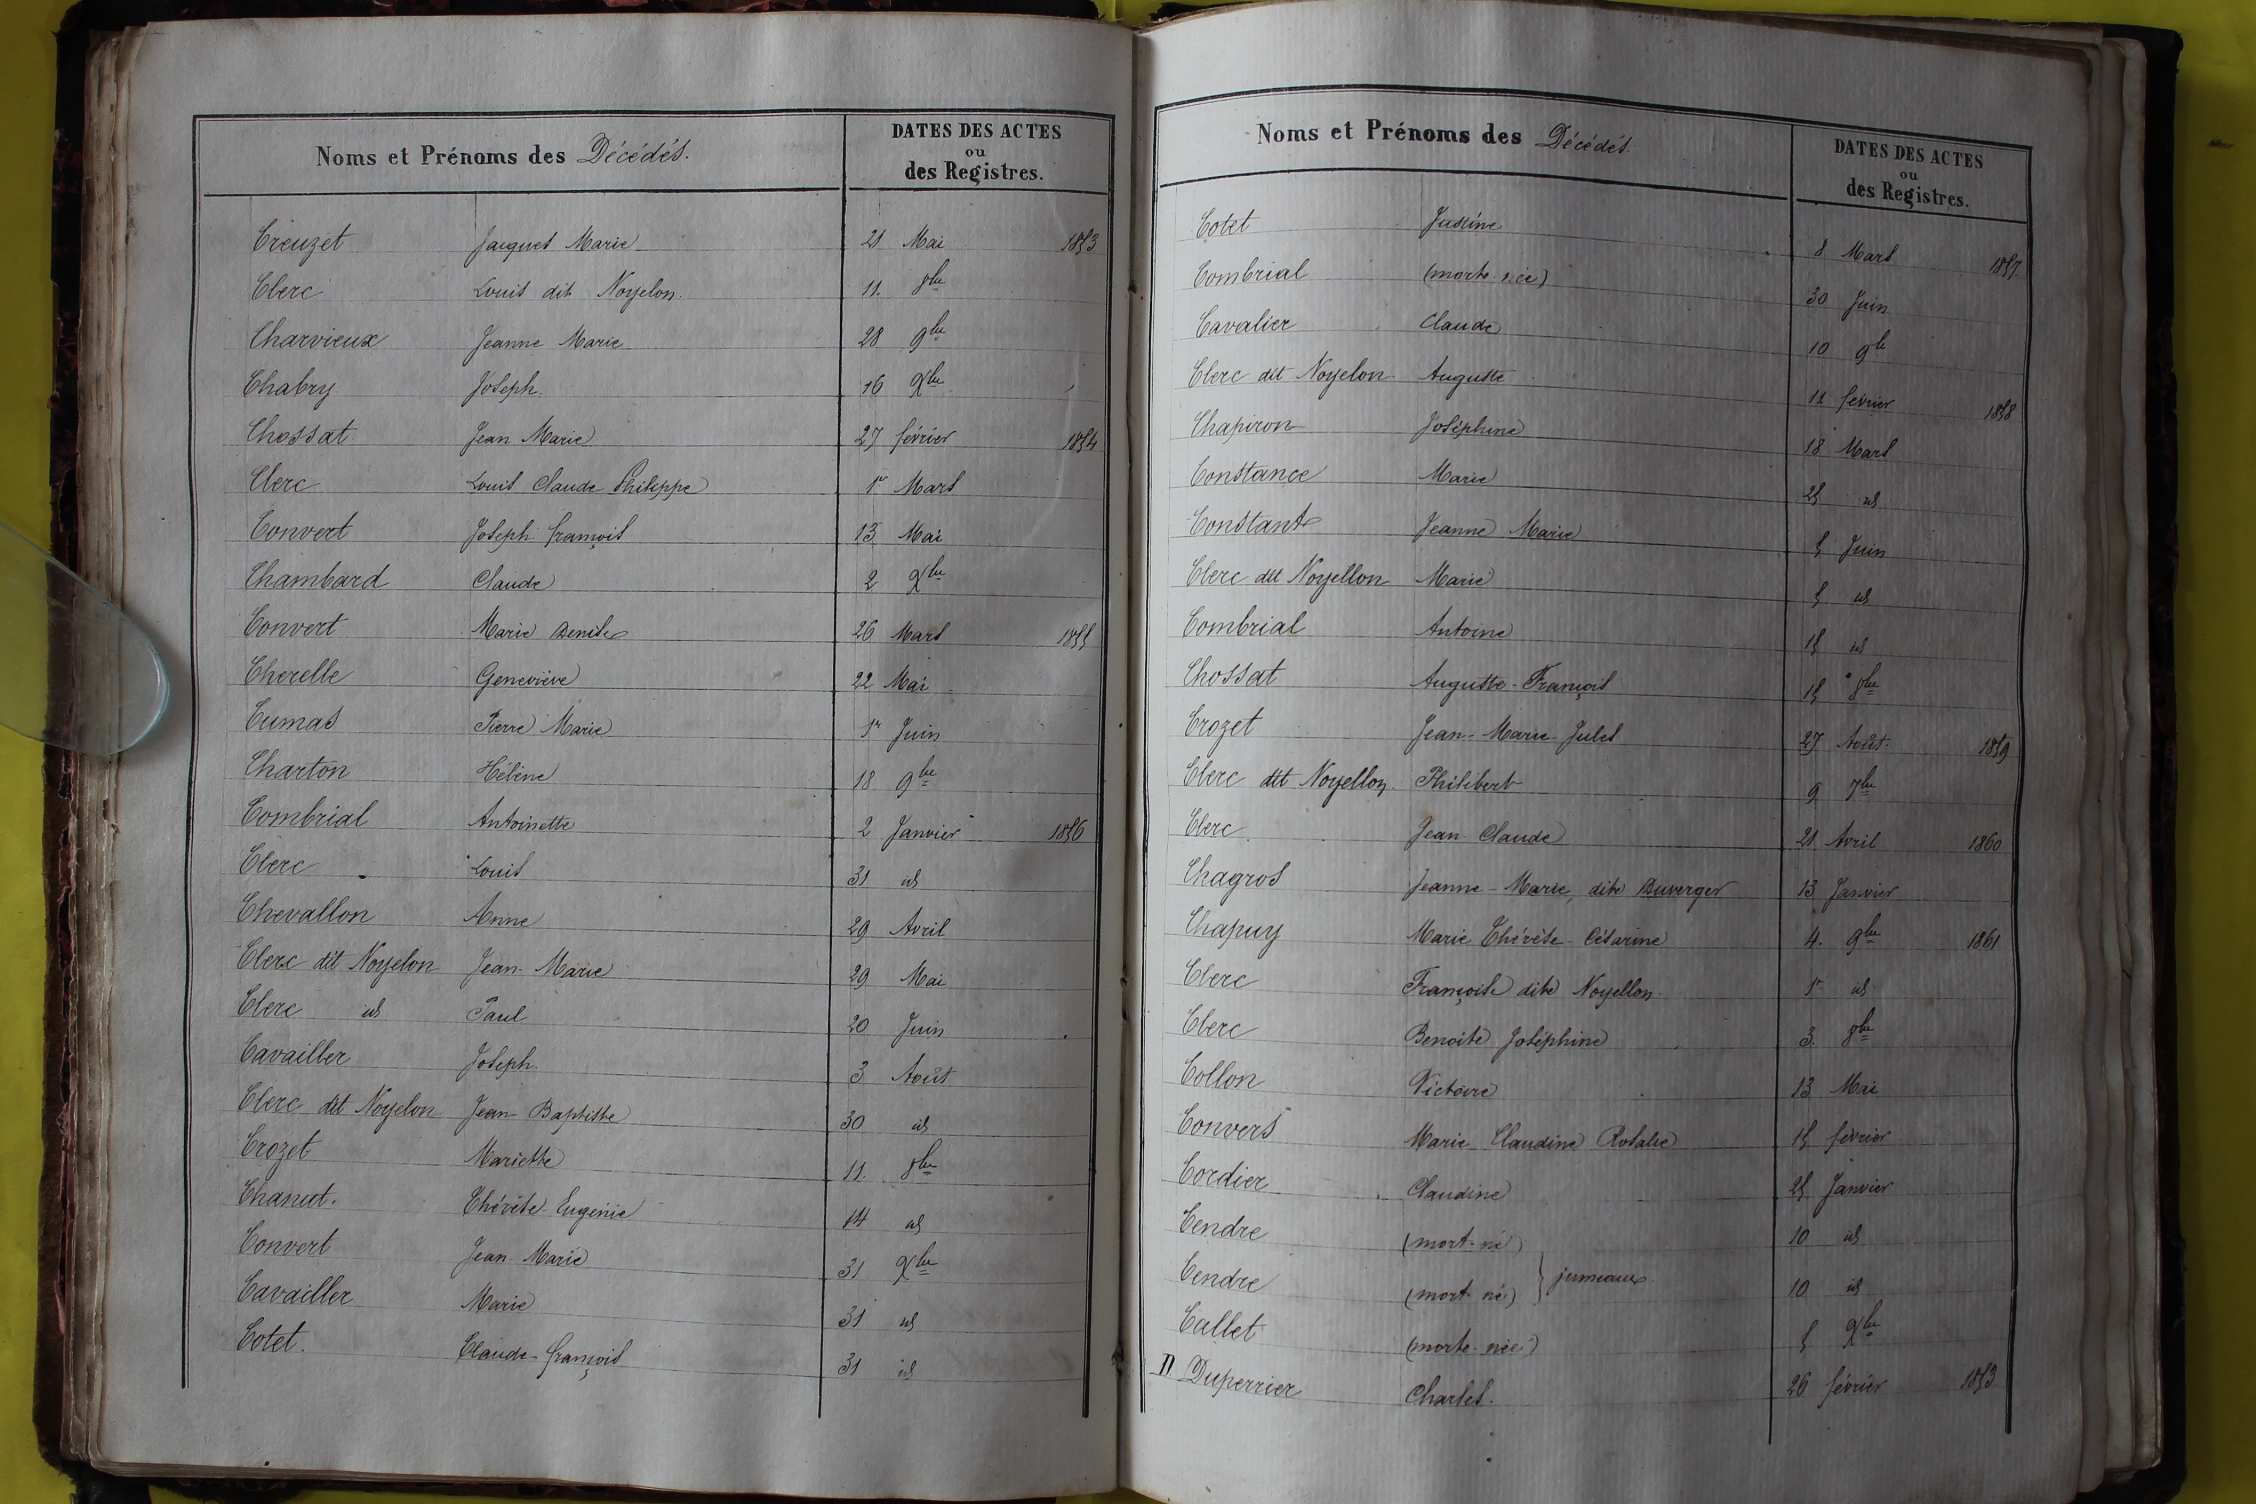 Noms et Prénoms des Décédés. DATES DES ACTES
ou
des Registres.
Creuzet Jacques Marie 21 Mai 1853
Clerc Louis dit Noyelon. 11. 8bre
Charvieux Jeanne Marie 28 9bre
Chabry Joseph 16 Xbre
Chossat Jean Marie 27 février 1854
Clerc Louis Claude Philippe 1er Mars
Convert Joseph françois 13 Mai
Chambard Claude 2 Xbre
Convert Marie Benite 26 Mars 1855
Cherelle Geneviève 22 Mai
Cumas Pierre Marie 1er Juin
Charton Hélène 18 9bre
Combrial Antoinette 2 Janvier 1856
Clerc Louis 31 id
Chevallon Anne 29 Avril
Clerc dit Noyelon Jean-Marie 29 Mai
Clerc id Paul 20 Juin
Cavailler Joseph 3 Août
Clerc dit Noyelon Jean-Baptiste 30 id
Crozet Mariette 11. 8bre
Chanut. Thérèse Eugénie 14 id
Convert Jean-Marie 31 Xbre
Cavailler Marie 31 id
Cotet. Claude-françois 31 id
Noms et Prénoms des Décédés. DATES DES ACTES
ou
des Registres.
Cotet Justine 8 Mars 1857.
Combrial (morte-née) 30 Juin
Cavalier Claude 10 9b
Clerc dit Noyelon Auguste 11 février 1858
Chapiron Joséphine 18 Mars
Constance Marie 25 id
Constant Jeanne Marie 5 Juin
Clerc dit Noyellon Marie 5 id
Combrial Antoine 15 id
Chossat Auguste-François 15 8bre
Crozet Jean-Marie-Jules 27 Août 1859
Clerc dit Noyellon Philibert 9 7bre
Clerc Jean-Claude 21 Avril 1860
Chagros Jeanne-Marie, dite Duverger 13 Janvier
Chapuy Marie Thérèse-Césarine 4. 9bre 1861
Clerc Françoise dite Noyellon 1er id
Clerc Benoite Joséphine 3. 8bre
Collon Victoire 13 Mai
Convers Marie Claudine Rosalie 15 février
Cordier Claudine 25 Janvier
Cendre (mort-né) 10 id
jumeaux
Cendre (mort-né) 10 id
Callet (morte-née) 5 Xbre
D Duperrier Charles. 26 février 1853